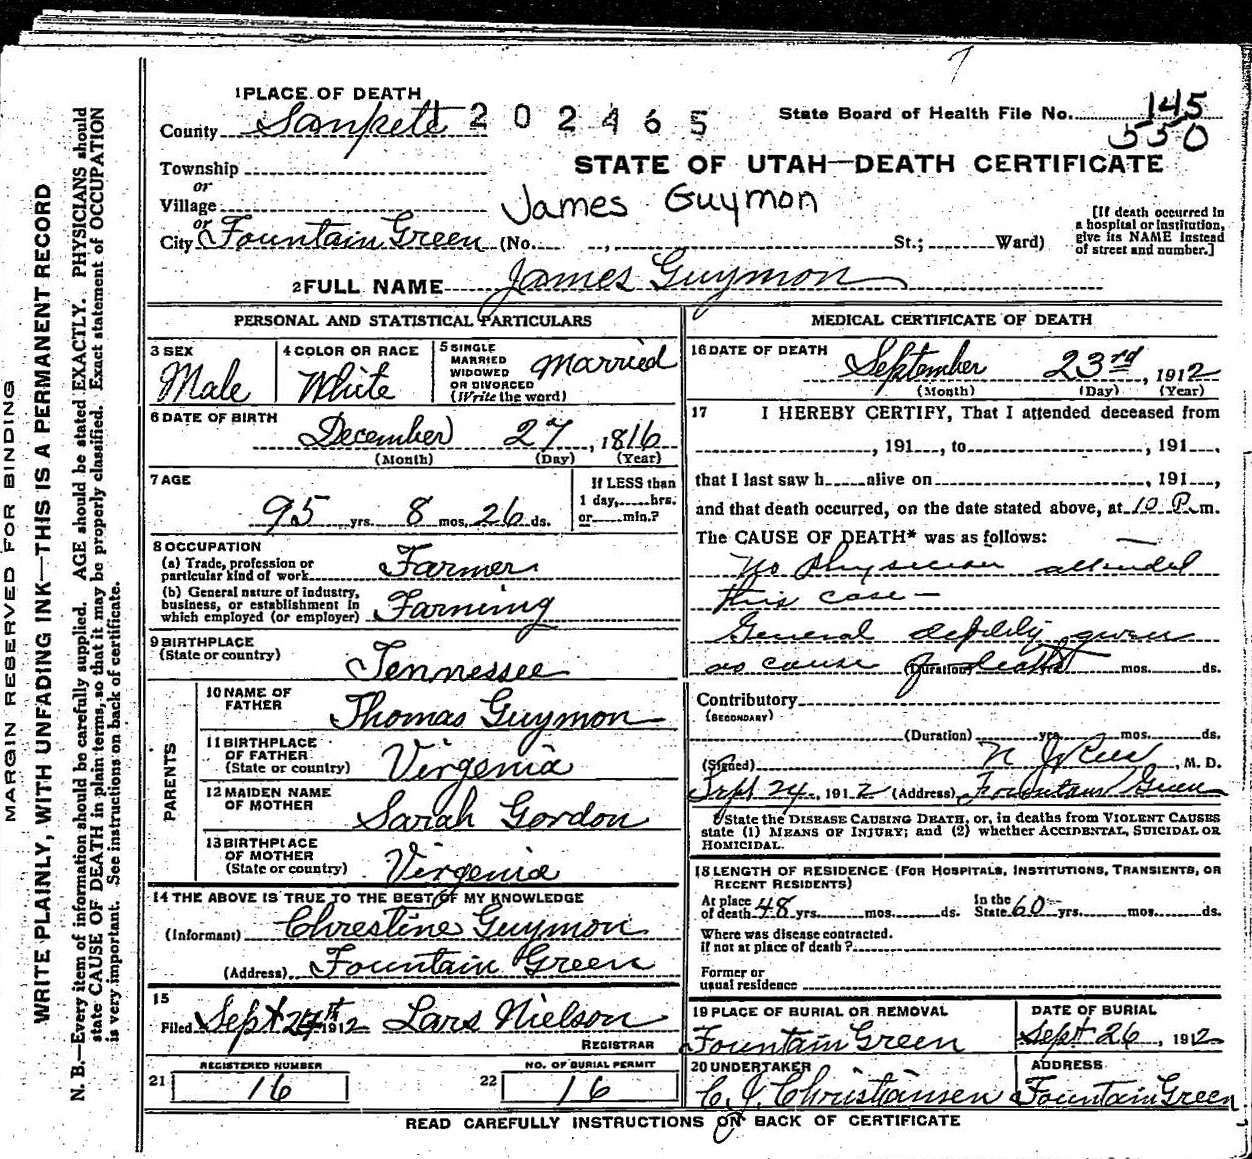 1 PLACE OF DEATH
County Sanpete 1202465
State Board of Health File No. 145
550
Township
or
Village
or
City Fountain Green (No. , St.; Ward)
STATE OF UTAH—DEATH CERTIFICATE
James Guymon
[If death occurred in
a hospital or institution,
give its NAME instead
of street and number.]
2 FULL NAME James Guymon
PERSONAL AND STATISTICAL PARTICULARS
3 SEX
Male
4 COLOR OR RACE
White
5 SINGLE
MARRIED
WIDOWED
OR DIVORCED
(Write the word)
Married
6 DATE OF BIRTH
December 27, 1816
(Month) (Day) (Year)
7 AGE
95 yrs. 8 mos. 26 ds.
If LESS than
1 day, hrs.
or min.?
8 OCCUPATION
(a) Trade, profession or
particular kind of work Farmer
(b) General nature of industry,
business, or establishment in
which employed (or employer) Farming
9 BIRTHPLACE
(State or country)
Tennessee
PARENTS
10 NAME OF
FATHER
Thomas Guymon
11 BIRTHPLACE
OF FATHER
(State or country)
Virgenia
12 MAIDEN NAME
OF MOTHER
Sarah Gordon
13 BIRTHPLACE
OF MOTHER
(State or country)
Virgenia
14 THE ABOVE IS TRUE TO THE BEST OF MY KNOWLEDGE
(Informant) Chrestine Guymon
(Address) Fountain Green
15
Filed Sept 24th 1912 Lars Nielson
REGISTRAR
REGISTERED NUMBER
21 16
NO. OF BURIAL PERMIT
22 16
MEDICAL CERTIFICATE OF DEATH
16 DATE OF DEATH
September 23rd, 1912
(Month) (Day) (Year)
17 I HEREBY CERTIFY, That I attended deceased from
, 191 , to , 191 ,
that I last saw h alive on , 191 ,
and that death occurred, on the date stated above, at 10 P. m.
The CAUSE OF DEATH* was as follows:
No Physician attended
this case —
General debility given
as cause of death
(Duration) yrs. mos. ds.
Contributory
(SECONDARY)
(Duration) yrs. mos. ds.
(Signed) , M. D.
Sept 24, 1912 (Address) Fountain Green
* State the DISEASE CAUSING DEATH, or, in deaths from VIOLENT CAUSES
state (1) MEANS OF INJURY; and (2) whether ACCIDENTAL, SUICIDAL OR
HOMICIDAL.
18 LENGTH OF RESIDENCE (FOR HOSPITALS, INSTITUTIONS, TRANSIENTS, OR
RECENT RESIDENTS)
At place
of death 48 yrs. mos. ds.
In the
State 60 yrs. mos. ds.
Where was disease contracted.
if not at place of death?
Former or
usual residence
19 PLACE OF BURIAL OR REMOVAL
Fountain Green
DATE OF BURIAL
Sept 26, 1912
20 UNDERTAKER
C. J. Christiansen
ADDRESS
Fountain Green
READ CAREFULLY INSTRUCTIONS ON BACK OF CERTIFICATE
MARGIN RESERVED FOR BINDING
WRITE PLAINLY, WITH UNFADING INK—THIS IS A PERMANENT RECORD
N. B.—Every item of information should be carefully supplied. AGE should be stated EXACTLY. PHYSICIANS should
state CAUSE OF DEATH in plain terms, so that it may be properly classified. Exact statement of OCCUPATION
is very important. See instructions on back of certificate.